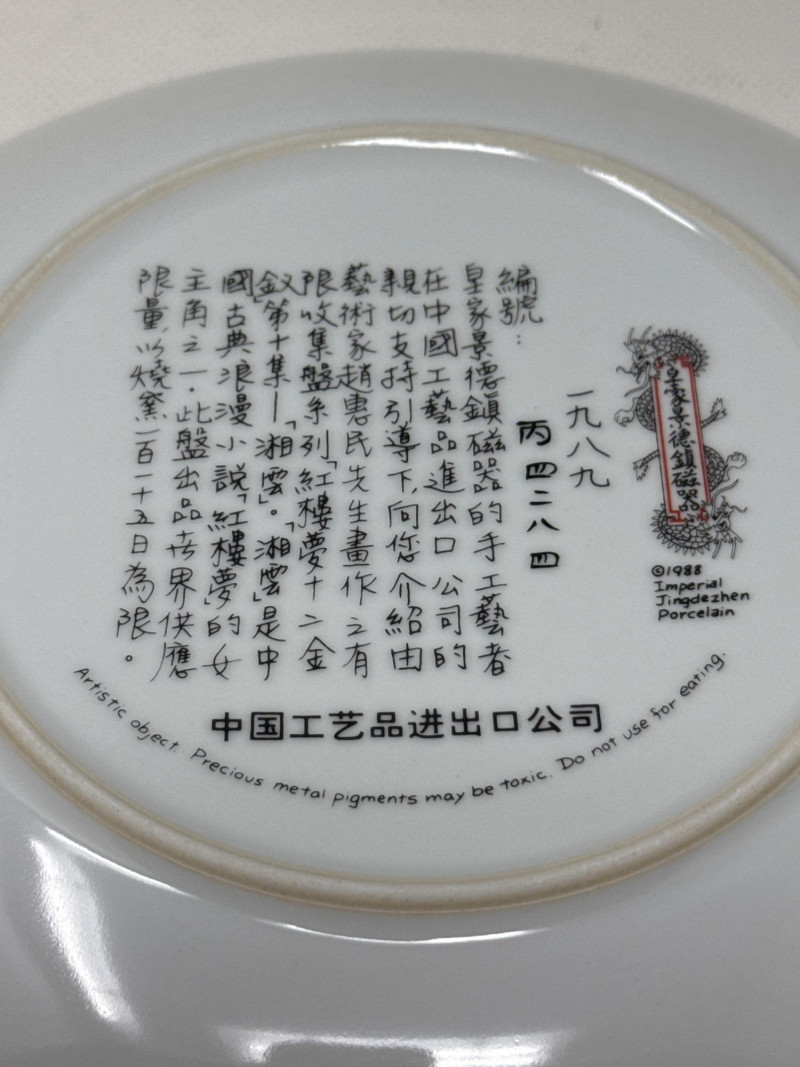 皇家景德鎮磁器
©1988
Imperial
Jingdezhen
Porcelain
一九八九
編號：
丙四二八四
皇家景德鎮磁器的手工藝者
在中國工藝品進出口公司的
親切支持引導下，向您介紹由
藝術家趙惠民先生畫作之有
限收集盤系列「紅樓夢十二金
釵」第十集—「湘雲」。「湘雲」是中
國古典浪漫小說「紅樓夢」的女
主角之一．此盤出品世界供應
限量，以燒窯一百一十五日為限。
中国工艺品进出口公司
Artistic object. Precious metal pigments may be toxic. Do not use for eating.